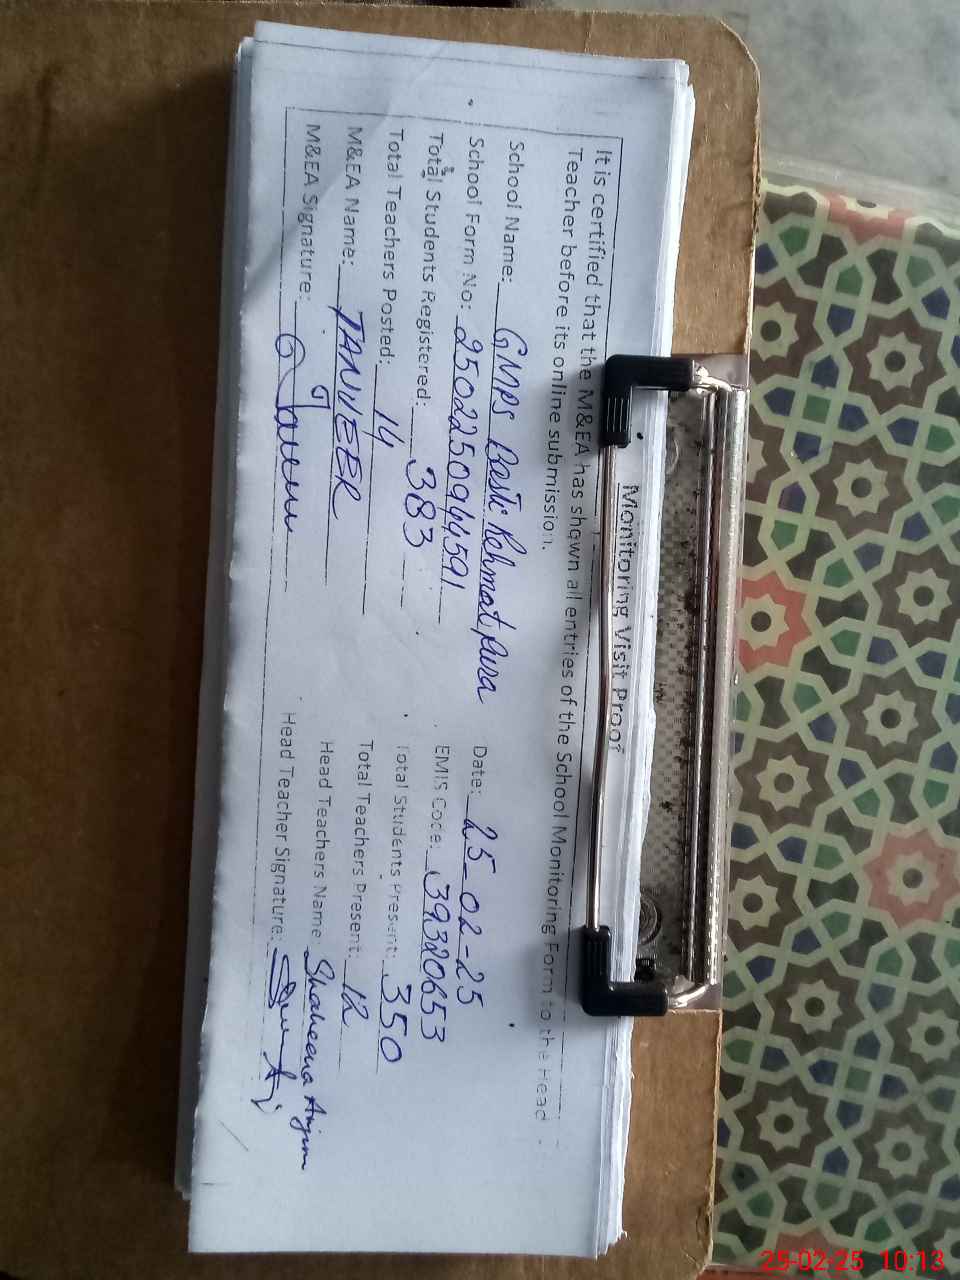 Monitoring Visit Proof
It is certified that the M&EA has shown all entries of the School Monitoring Form to the Head
Teacher before its online submission.
School Name: GMPS Basti Rehmat pura Date: 25-02-25
School Form No: 250225094459 EMIS Code: 39320653
Total Students Registered: 383 Total Students Present: 350
Total Teachers Posted: 14 Total Teachers Present: 12
M&EA Name: TANVEER Head Teachers Name: Shaheena Anjum
M&EA Signature: Head Teacher Signature:
25-02-25 10:13